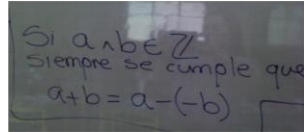 Si a ∧ b ∈ ℤ
siempre se cumple que
a+b = a-(-b)